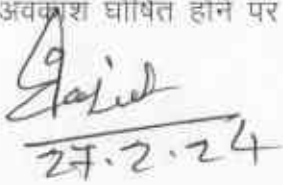 अवकाश घोषित होने पर
27.2.24